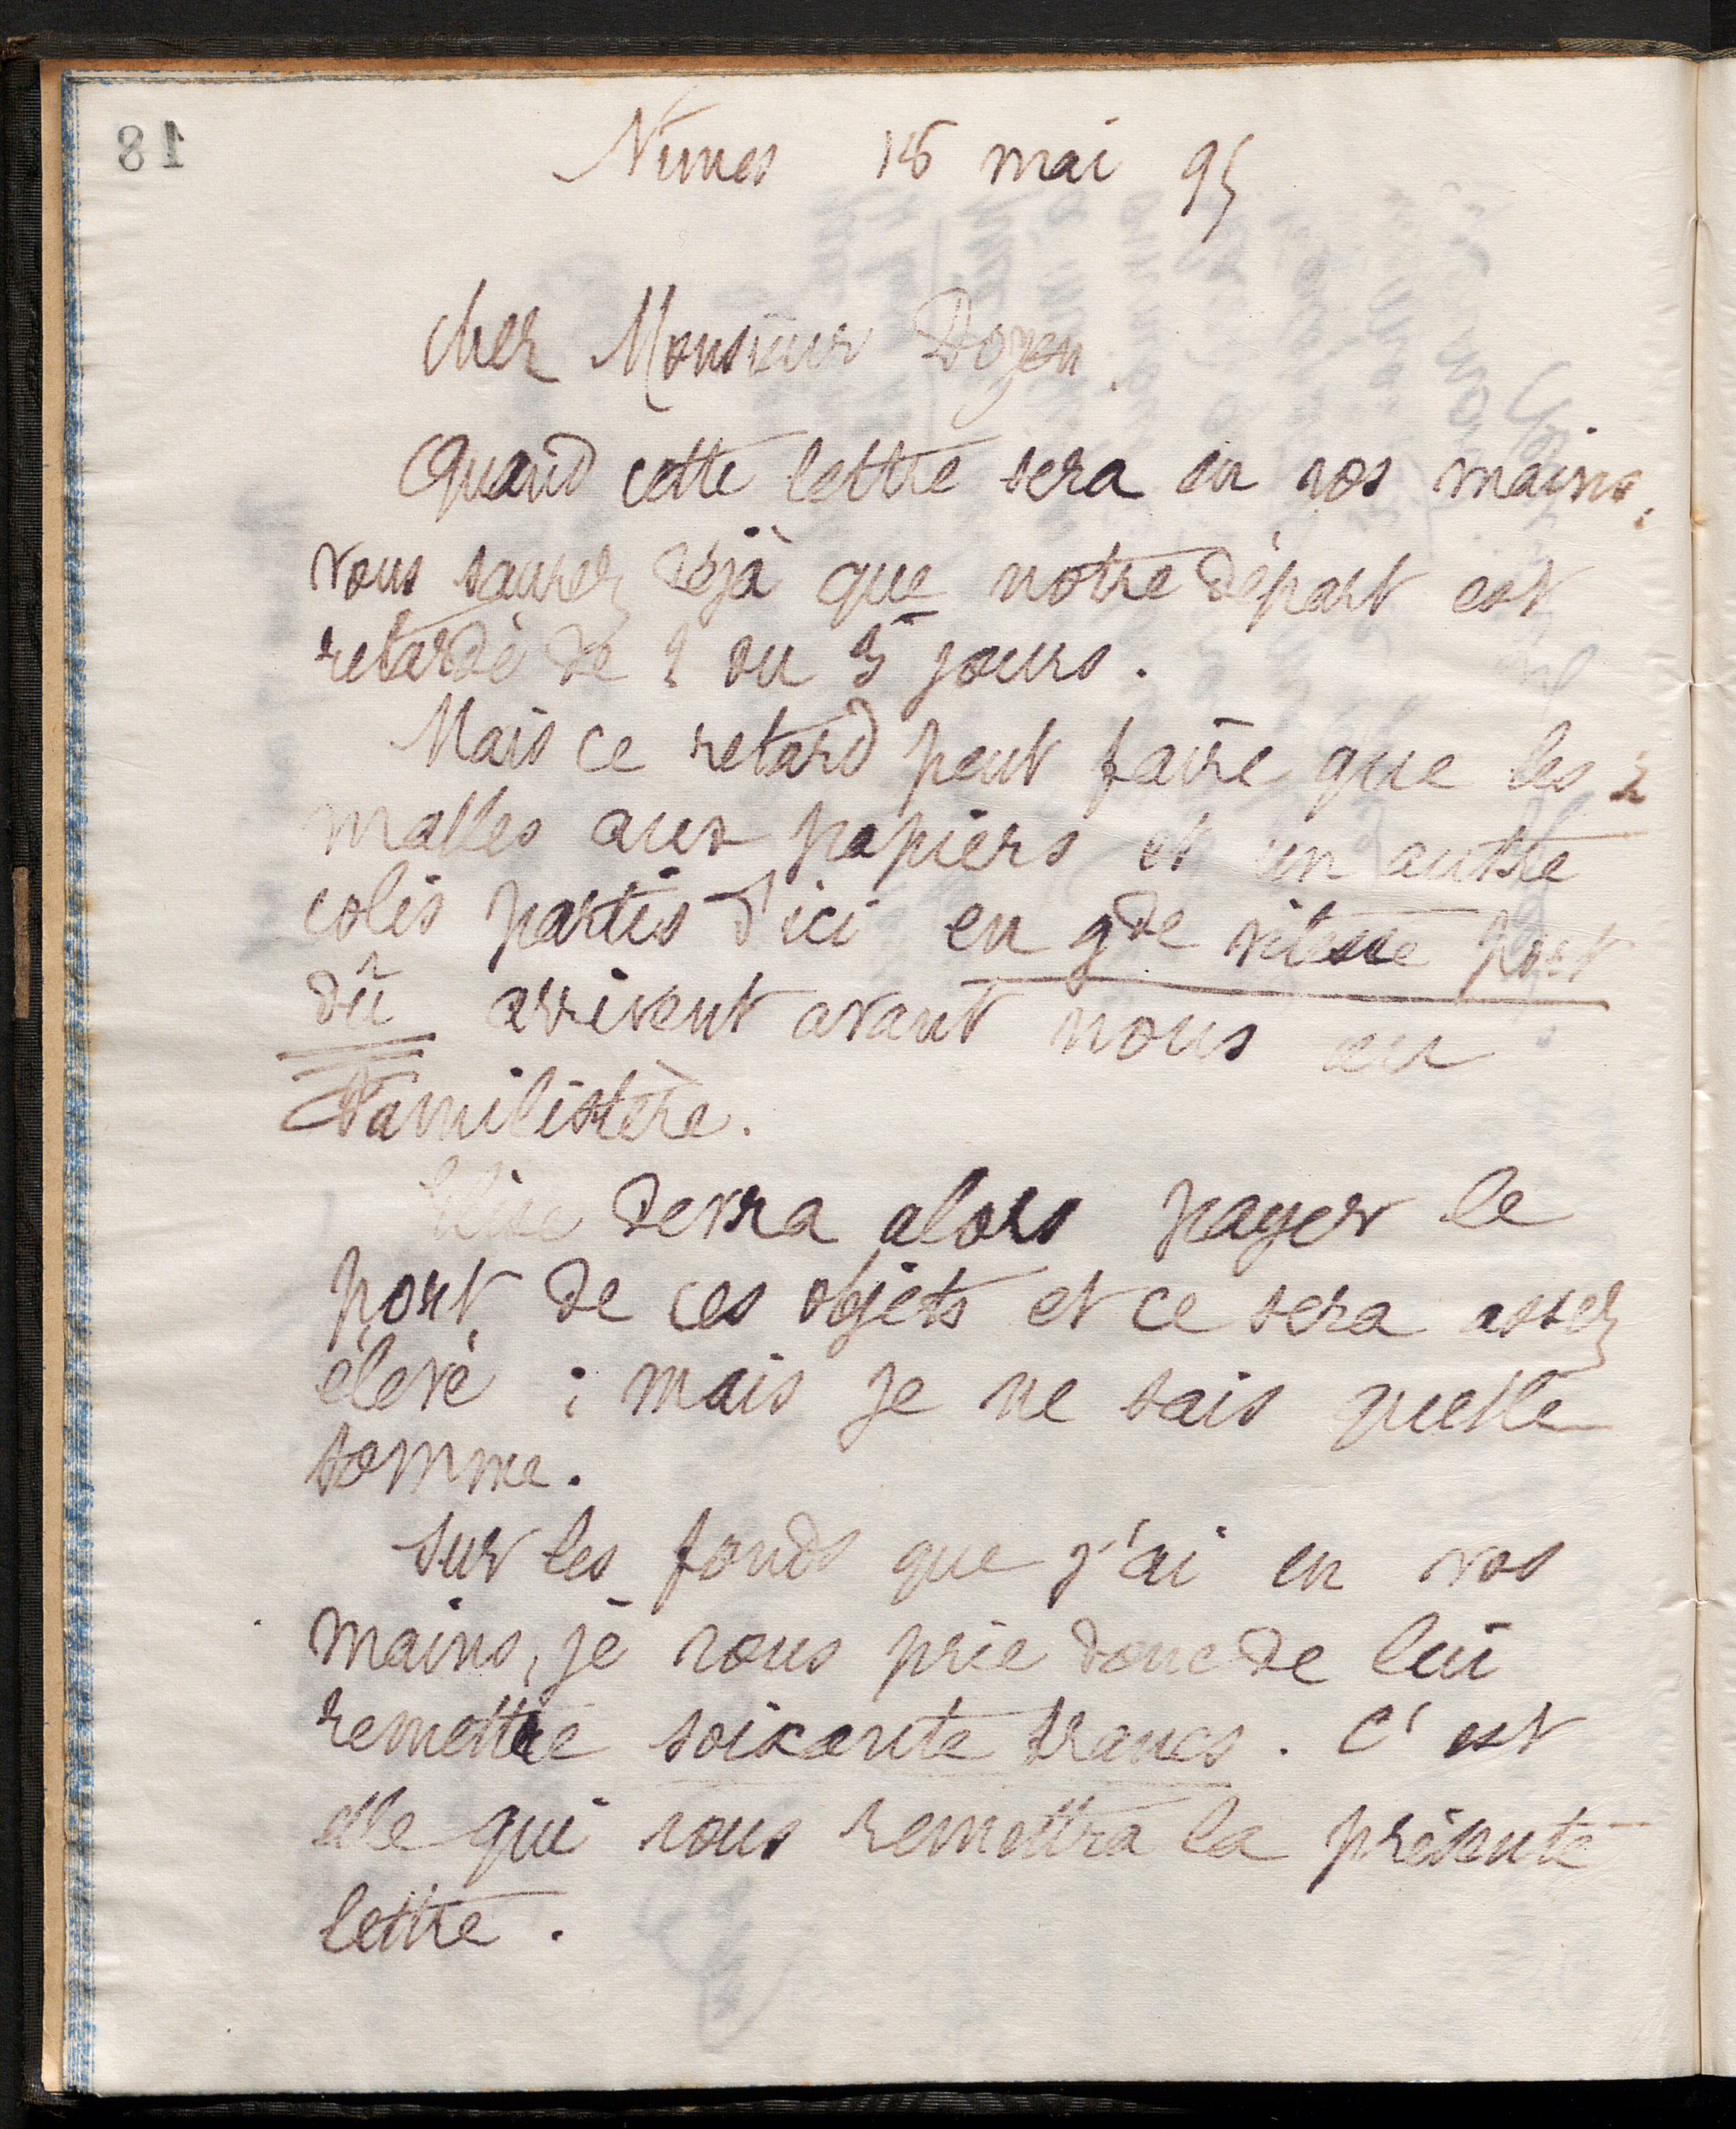 81
Nimes 16 mai 95
Cher Monsieur Doyen.
Quand cette lettre sera en vos mains,
vous saurez déjà que notre départ est
retardé de 2 ou 3 jours.
Mais ce retard peut faire que les 2
malles aux papiers et un autre
colis partis d'ici en gde vitesse port
dû arrivent avant nous au
Familistère.
Elise devra alors payer le
port de ces objets et ce sera assez
élevé ; mais je ne sais quelle
somme.
Sur les fonds que j'ai en vos
mains, je vous prie donc de lui
remettre soixante francs. C'est
elle qui vous remettra la présente
lettre.